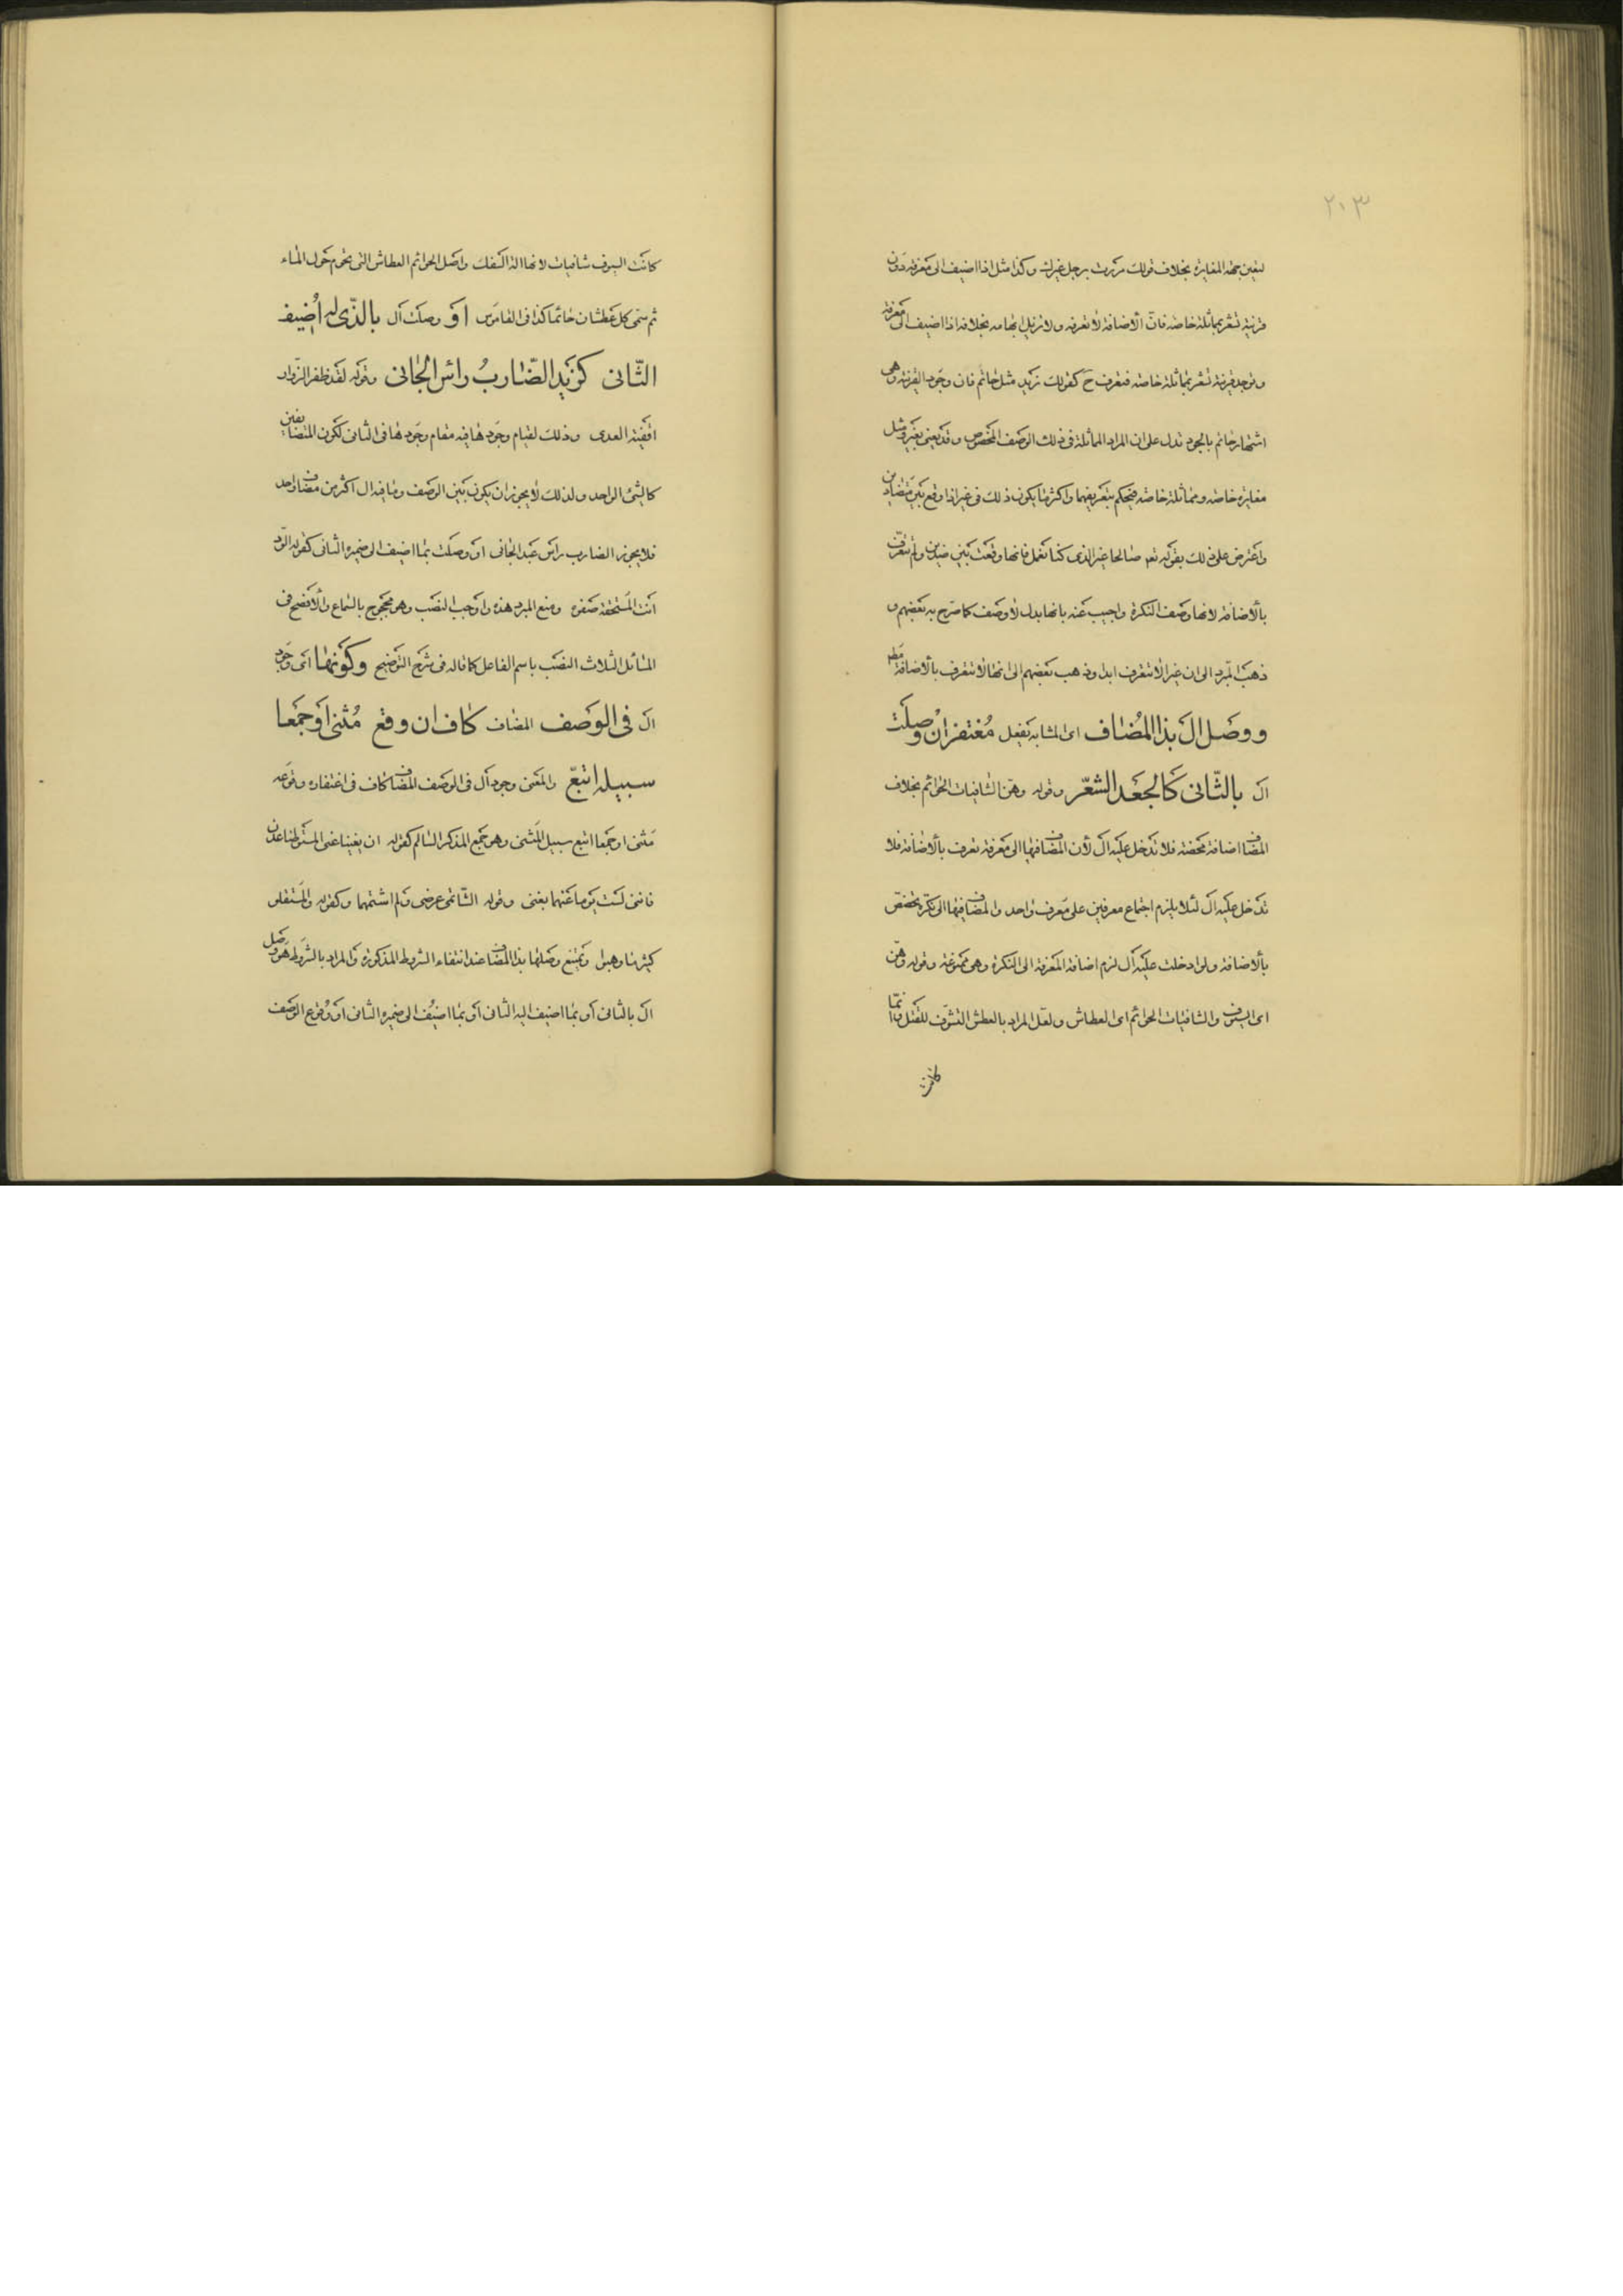 ٢٠٣
لتعين جهة المغايرة بخلاف قولك مررت برجل غيرك وكذا مثل اذا اضيف الى معرفة دون
قرينة تشعر بمماثلة خاصة فانّ الاضافة لا تعرفه ولا تزيل ابهامه بخلافه اذا اضيف الى معرفة
وتوجد قرينة تشعر بمماثلة خاصة فتعرف ح كقولك زيد مثل حاتم فان وجود القرينة وهى
اشتهار حاتم بالجود تدل على ان المراد المماثلة فى ذلك الوصف المخصوص وقد يعنى بغير ومثل
مغايرة خاصه ومماثلة خاصه فيحكم بتعريفهما واكثر ما يكون ذلك فى غير اذا وقع بين متضادين
واعترض على ذلك بقوله تعم صالحا غير الذى كنا نعمل فانها وقعت بين ضدين ولم تتعرف
بالاضافة لانها وصف النكرة واجيب عنه بانها بدل لا وصف كما صرح به بعضهم و
ذهب المبرد الى ان غير لا تتعرف ابدا وذهب بعضهم الى انها لا تتعرف بالاضافة مطم
ووصل ال بذا المضاف اى المشابه يفعل مغتفر ان وصلت
ال بالثّانى كالجعد الشعر وقوله وهنّ الشافيات الحوائم بخلاف
المضاف اضافة محضة فلا تدخل عليه ال لأن المضاف فيها الى معرفة تعرف بالاضافة فلا
تدخل عليه ال لئلا يلزم اجتماع معرفين على معرف واحد والمضاف فيها الى نكرة تخصص
بالاضافة ولو ادخلت عليه ال لزم اضافة المعرفة الى النكرة وهى ممنوعة وقوله وهنّ
اى السيوف والشافيات الحوائم اى العطاش ولعل المراد بالعطش التشوق للقتل وانما
كانت
كانت السيوف شافيات لانها الة السفك واصل الحوائم العطاش التى تحوم حول الماء
ثم سمى كل عطشان حائما كذا فى القاموس او وصلت ال بالذّى له أُضيف
الثّانى كزيد الضّاربُ راس الجانى وقوله لقد ظفر الزوّار
اقفية العدى وذلك لقيام وجودها فيه مقام وجودها فى الثانى لكون المتضايفين
كالشئ الواحد ولذلك لا يجوز ان يكون بين الوصف وما فيه ال اكثر من مضاف واحد
فلا يجوز الضارب راس عبد الجانى او وصلت بما اضيف الى ضميره الثانى كقوله الودّ
انت المستحقة صفوه ومنع المبرد هذه واوجب النصب وهو محجوج بالسماع والافصح فى
المسائل الثلاث النصب باسم الفاعل كما قاله فى شرح التوضيح وكونها اى وجود
ال فى الوصف المضاف كاف ان وقع مُثنى او جمعا
سبيله اتّبع والمعنى وجود ال فى الوصف المضاف كاف فى اغتفاره وقوعه
مثنى او جمعا اتبع سبيل المثنى وهو جمع المذكر السالم كقوله ان يغنيا عنى المستوطنا عدن
فاننى لست يوما عنهما بغنى وقوله الشّاتمى عرضى ولم اشتمهما وكقوله والمستقلو
كثير ما وهبوا ويمتنع وصلها بذا المضاف عند انتفاء الشروط المذكورة والمراد بالشروط هو وصل
ال بالثانى او بما اضيف اليه الثانى او بما اضيف الى ضميره الثانى او وقوع الوصف